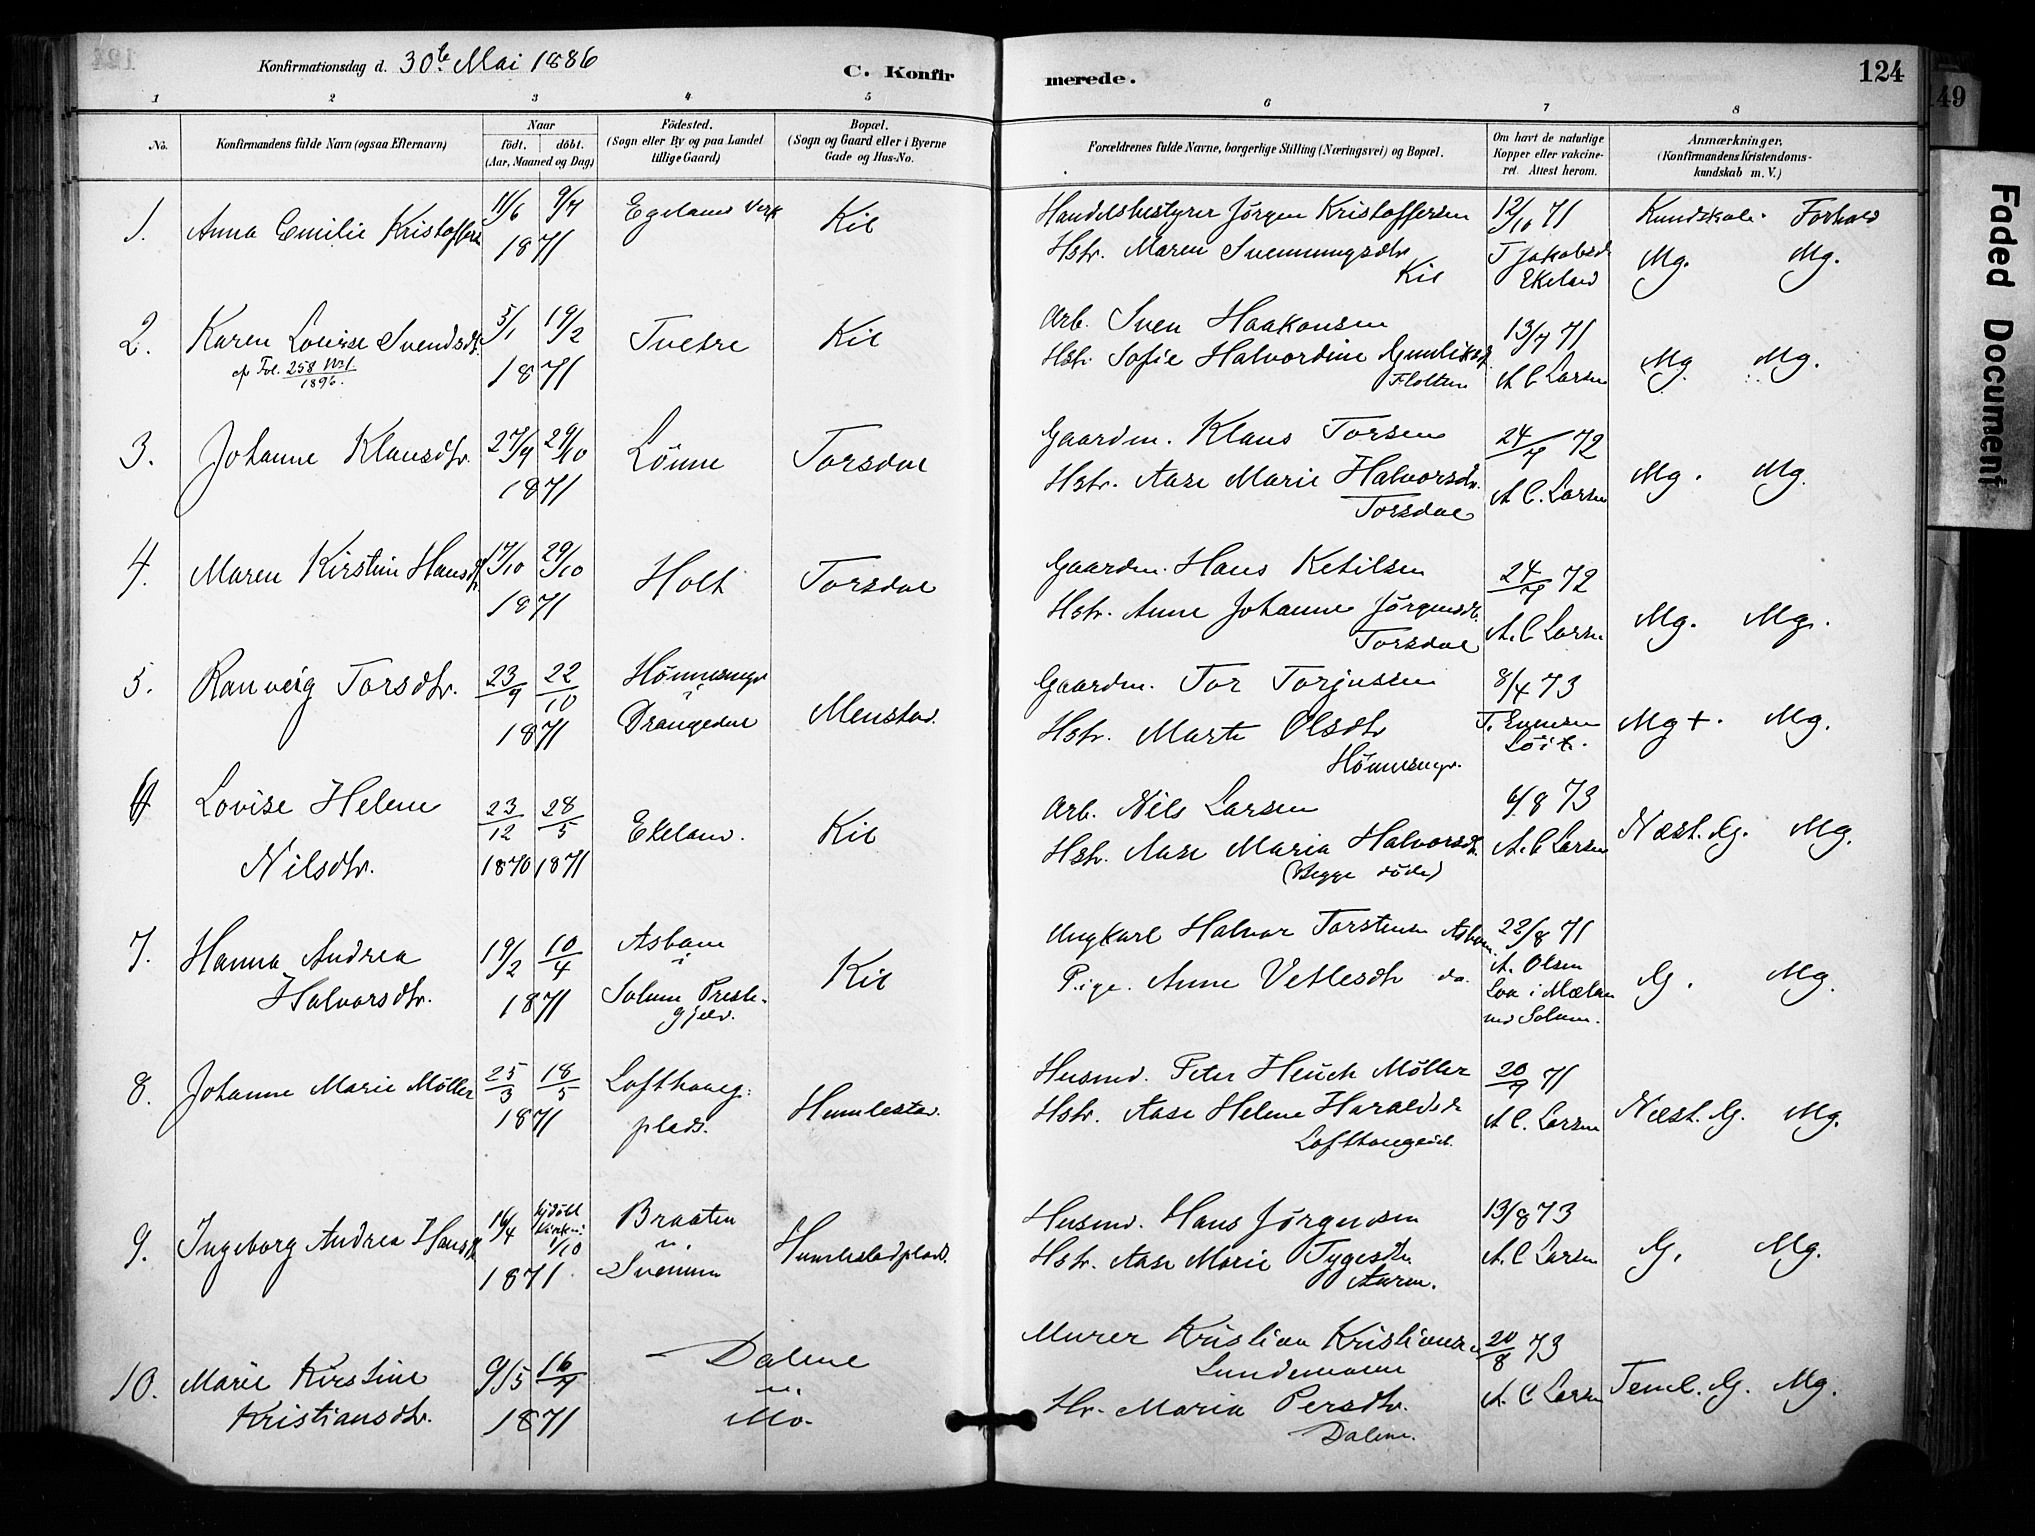 Konfirmationsdag d. 30te Mai 1886
C. Konfirmerede.
124
149
Faded Document
1 2 3 4 5 6 7 8
No.
Konfirmandens fulde Navn (ogsaa Efternavn)
Naar
födt. döbt.
(Aar, Maaned og Dag)
Födested.
(Sogn eller By og paa Landet
tillige Gaard)
Bopæl.
(Sogn og Gaard eller i Byerne
Gade og Hus-No.
Forældrenes fulde Navne, borgerlige Stilling (Næringsvei) og Bopæl.
Om havt de naturlige
Kopper eller vakcine-
ret. Attest herom.
Anmærkninger,
(Konfirmandens Kristendoms-
kundskab m. V.)
1. Anna Emilie Kristoffers 11/6 9/7 1871 Egelands Verk Kil
Handelsbestyrer Jørgen Kristoffersen 12/10 71 Kundskab. Forhold
Hstr. Maren Svennungsdtr T Jakobsen Mg. Mg.
Kil Ekeland
2. Karen Lovise Svendsdtr. 5/1 19/2 1871 Tvetre Kil
Fol. 258 No 1
1896.
Arb. Sven Haakonsen 13/7 71
Hstr. Sofie Halvordine Gunliksdtr. Mg. Mg.
A C Larsen
3. Johanne Klausdtr. 27/9 29/10 1871 Lönne Torsdal
Gaardm. Klaus Torsen 24/7 72
Hstr. Aase Marie Halvorsdtr. Mg. Mg.
Torsdal A C. Larsen
4. Maren Kirstine Hansdtr. 17/10 29/10 1871 Holt Torsdal
Gaardm. Hans Ketilsen 24/7 72
Hstr. Anne Johanne Jørgensdtr. Mg. Mg.
Torsdal A. C Larsen
5. Ranveig Torsdtr. 23/9 22/10 1871 i Drangedal Menstad.
Gaardm. Tor Torjussen 8/4 73
Hstr. Marte Olsdtr Mg+. Mg.
6 Lovise Helene 23/12 1870 28/5 1871 Ekeland. Kil
Nilsdtr.
Arb. Nils Larsen 6/8 73
Hstr. Aase Maria Halvorsdtr. A. C Larsen Næst. G. Mg.
(Begge döde)
7. Hanna Andrea 19/2 10/4 1871 i Solum Preste- Kil
Halvorsdtr. gjeld.
Ungkarl Halvor Torstensen 22/8 71
Pige. Anne Vetlesdtr do. A. Olsen G. Mg.
Solum.
8. Johanne Marie Möller 25/3 18/5 1871 plads. Humlestad.
Husmd. Peter Heuch Møller 20/9 71
Hstr. Aase Helene Haraldsdtr A C. Larsen Næst. G. Mg.
9. Ingeborg Andrea Hansdtr 16/4 hjdöbt 1/10 1871 Braaten Humlestadplads.
i
Husmd. Hans Jørgensen 13/8 73
Hstr. Aase Marie Tygesdtr. A. C Larsen G. Mg.
10. Marie Kirstine 9/5 16/7 1871 Dalene
Kristiansdtr. i Mo.
Murer Kristian Kristiansen 20/8 73
Lundemoen
Hr. Maria Persdtr. A. C Larsen Teml. G. Mg.
Dalene.